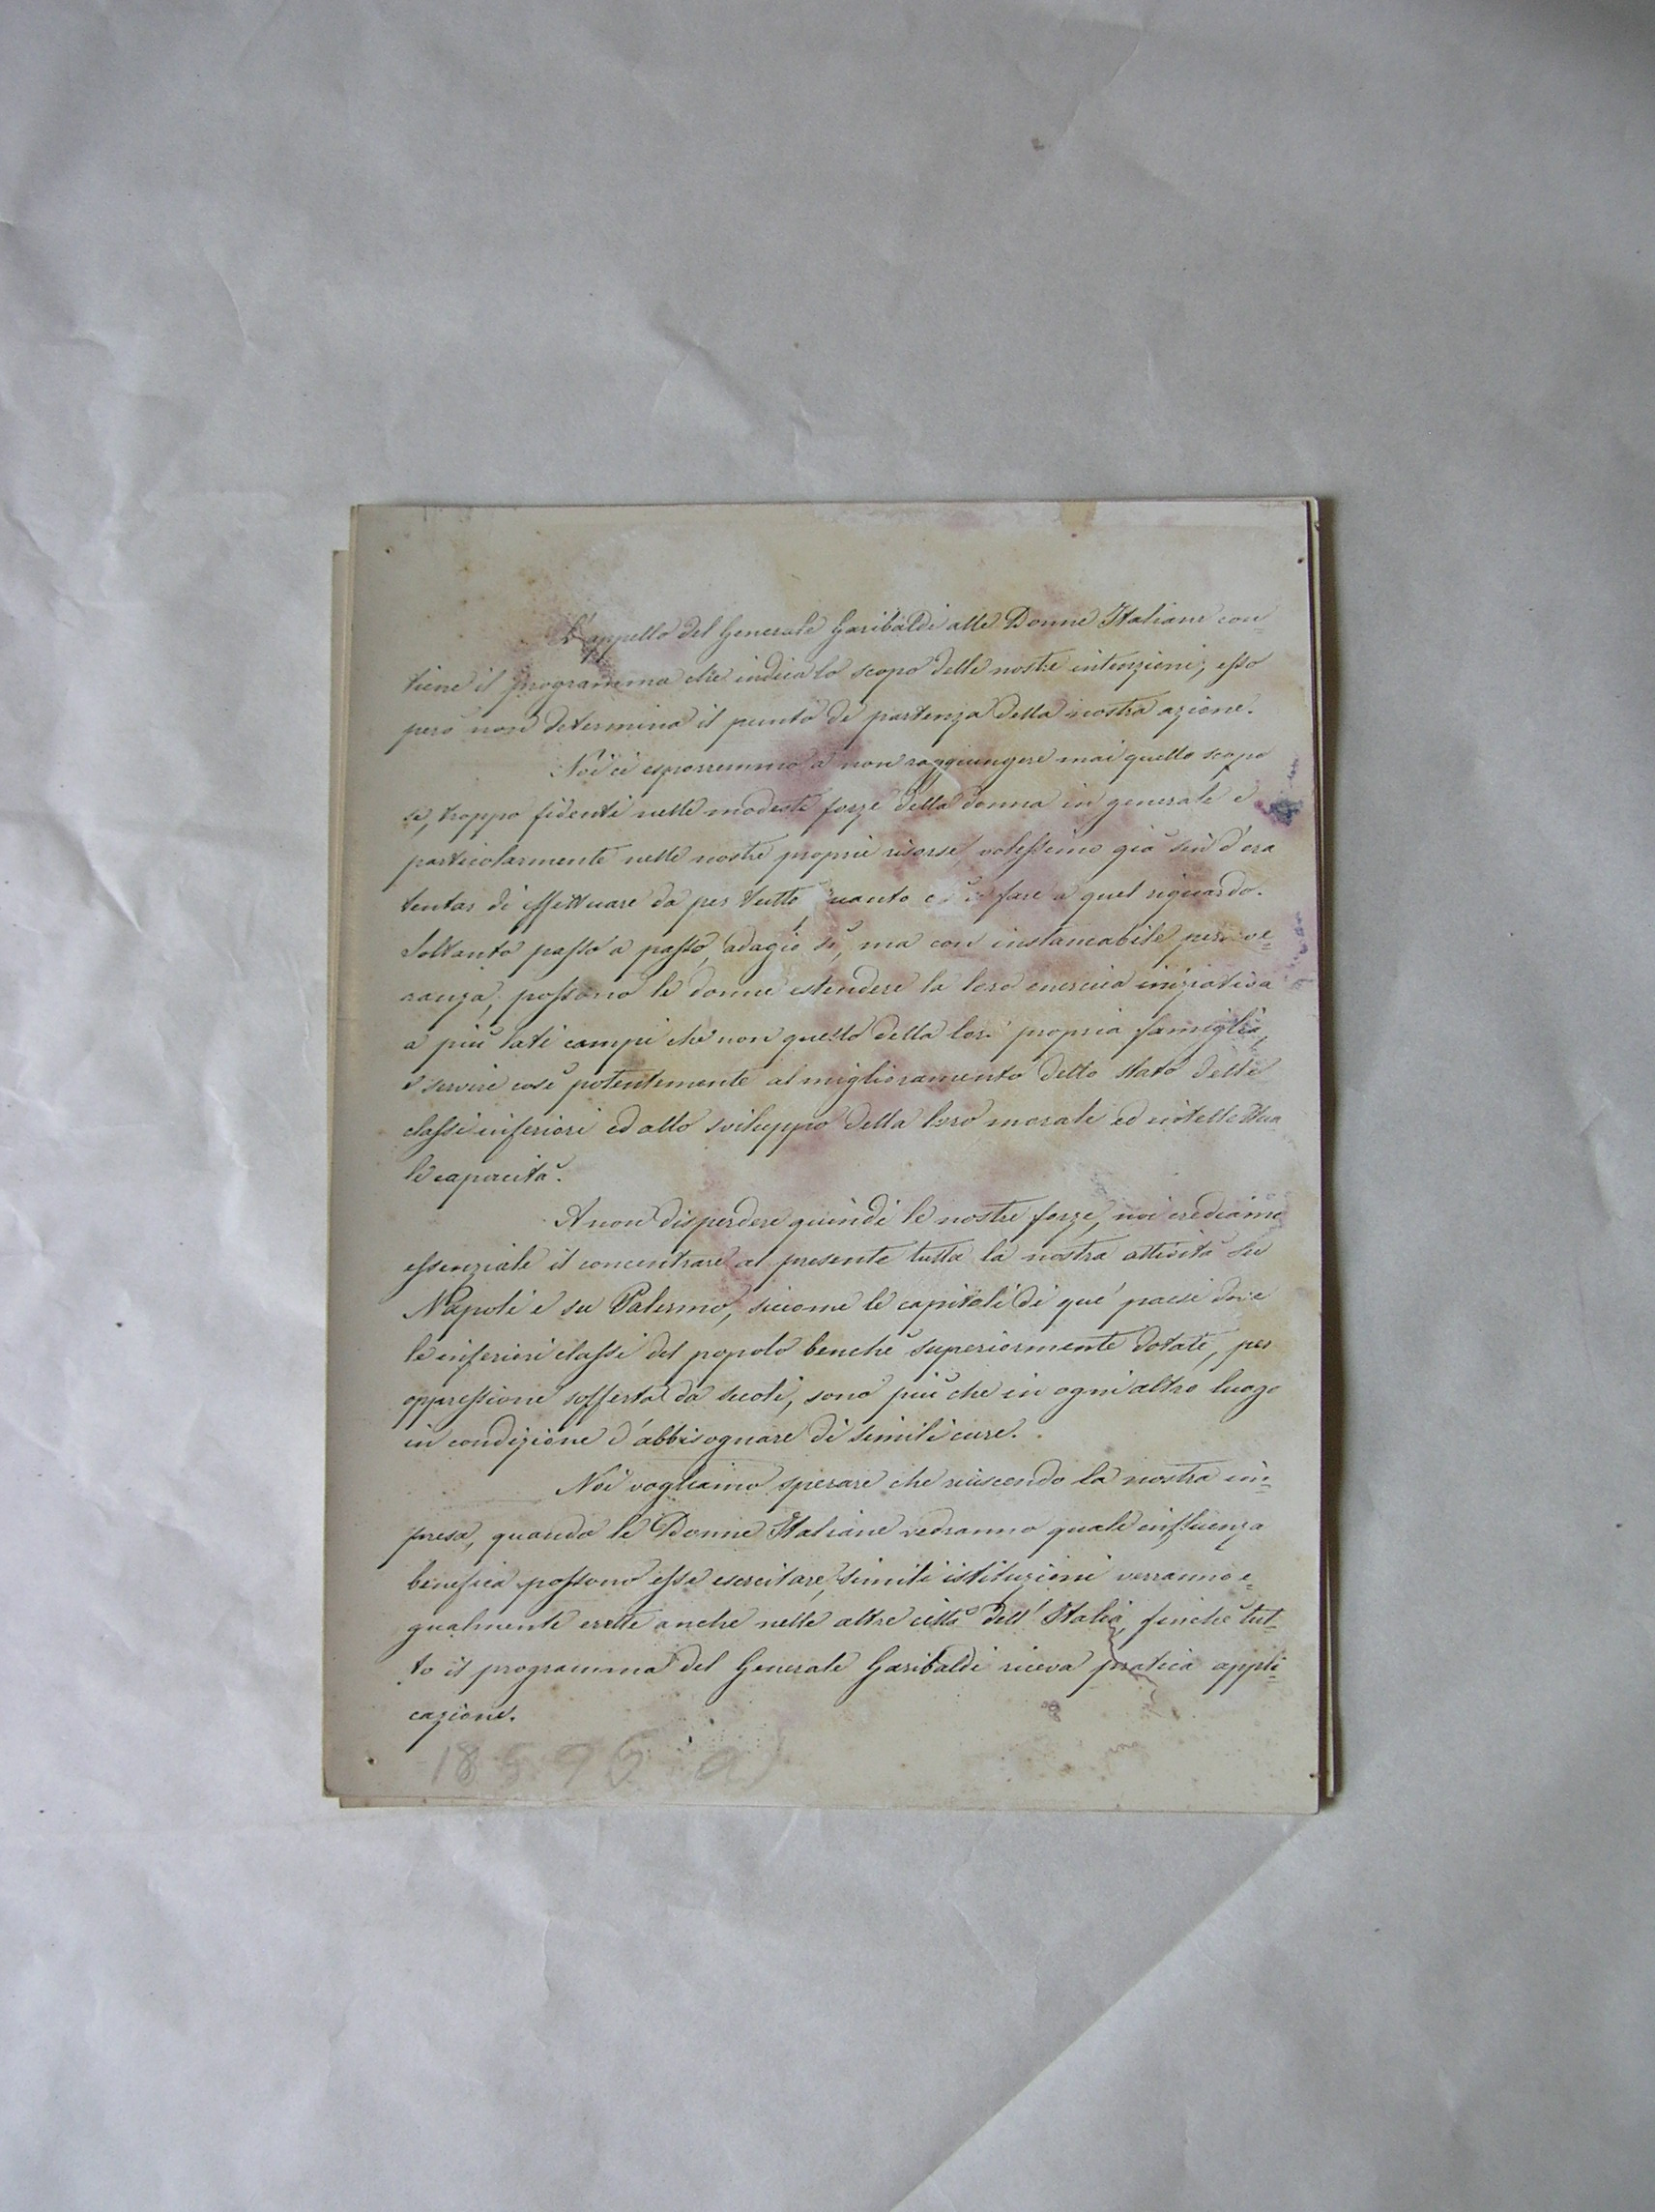 L'appello del Generale Garibaldi alle Donne Italiane con=
tiene il programma che indica lo scopo delle nostre intenzioni; esso
però non determina il punto di partenza della nostra azione.
Noi ci esporremmo a non raggiungere mai quello scopo
se, troppo fidenti nelle modeste forze della donna in generale e
particolarmente nelle nostre proprie risorse, volessimo già sin d'ora
tentar di effettuare da per tutto, quanto è a fare a quel riguardo.
Soltanto passo a passo, adagio sì, ma con instancabile perseve=
ranza, possono le donne estendere la loro energica iniziativa
a più lati campi che non quello della loro propria famiglia,
e servire così potentemente al miglioramento dello stato delle
classi inferiori ed allo sviluppo della loro morale ed intellettua=
le capacità.
A non disperdere quindi le nostre forze, noi crediamo
essenziale il concentrare al presente tutta la nostra attività su
Napoli e su Palermo, siccome le capitali di que' paesi dove
le inferiori classi del popolo benchè superiormente dotate, per
oppressione sofferta da secoli, sono più che in ogni altro luogo
in condizione d'abbisognare di simili cure.
Noi vogliamo sperare che riuscendo la nostra im=
presa, quando le Donne Italiane vedranno quale influenza
benefica possono esse esercitare, simili istituzioni verranno e=
gualmente erette anche nelle altre città dell' Italia, finchè tut=
to il programma del Generale Garibaldi riceva pratica appli=
cazione.
18596 a)